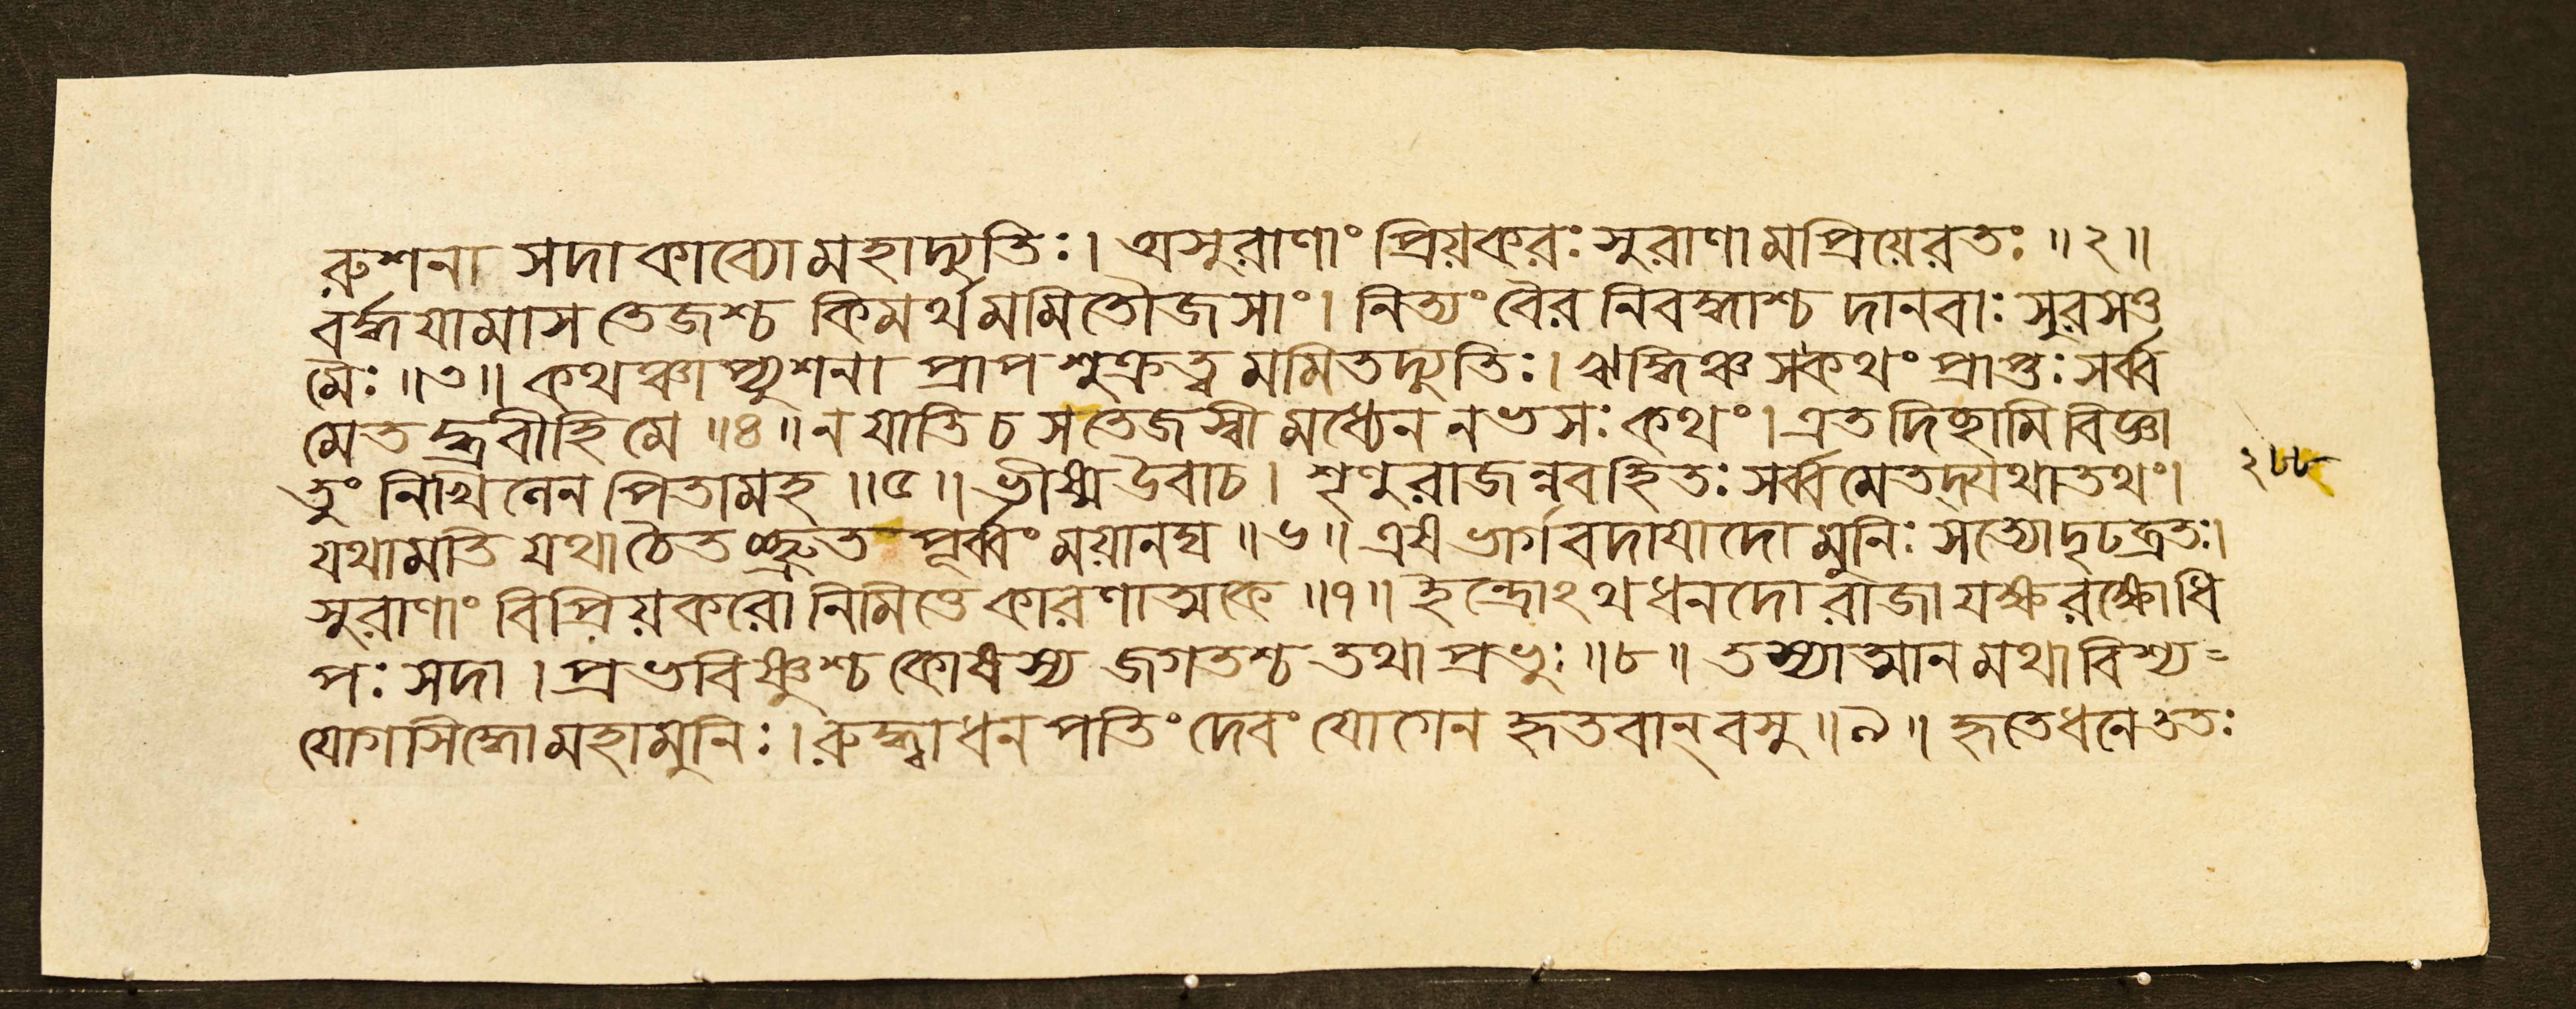 রুশনা সদা কাব্যো মহাদ্যুতিঃ। অসুরাণাং প্রিয়করঃ সুরাণামপ্রিয়েরতঃ॥২॥
বর্দ্ধযামাস তেজশ্চ কিমর্থমমিতৌজসাং। নিত্যং বৈর নিবদ্ধাশ্চ দানবাঃ সুরসত্ত
মৈঃ॥৩॥ কথঞ্চাপ্যুশনা প্রাপ শুক্রত্বমমিতদ্যুতিঃ। ঋদ্ধিঞ্চ স কথং প্রাপ্তঃ সর্ব্ব
মেতদ্ব্রবীহি মে॥৪॥ ন যাতি চ স তেজস্বী মধ্যেন নভসঃ কথং। এতদিচ্ছামি বিজ্ঞা
তুং নিখিলেন পিতামহ॥৫॥ ভীষ্ম উবাচ। শৃণু রাজন্নবহিতঃ সর্ব্বমেতদ্যথাতথং।
২৮৮
যথামতি যথা চৈতচ্ছ্রুত পূর্ব্বং ময়ানঘ॥৬॥ এষ ভার্গবদাযাদো মুনিঃ সত্যো দৃঢব্রতঃ।
সুরাণাং বিপ্রিয়করো নিমিত্তে কারণাত্মকে॥৭॥ ইন্দ্রোঽথ ধনদো রাজা যক্ষরক্ষোধি
পঃ সদা। প্রভবিষ্ণুশ্চ কোষস্য জগতশ্চ তথা প্রভুঃ॥৮॥ তস্যাত্মানমথাবিশ্য=
যোগসিদ্ধো মহামুনিঃ। রুদ্ধ্বা ধনপতিং দেবং যোগেন হৃতবান্ বসু॥৯॥ হৃতে ধনে ততঃ